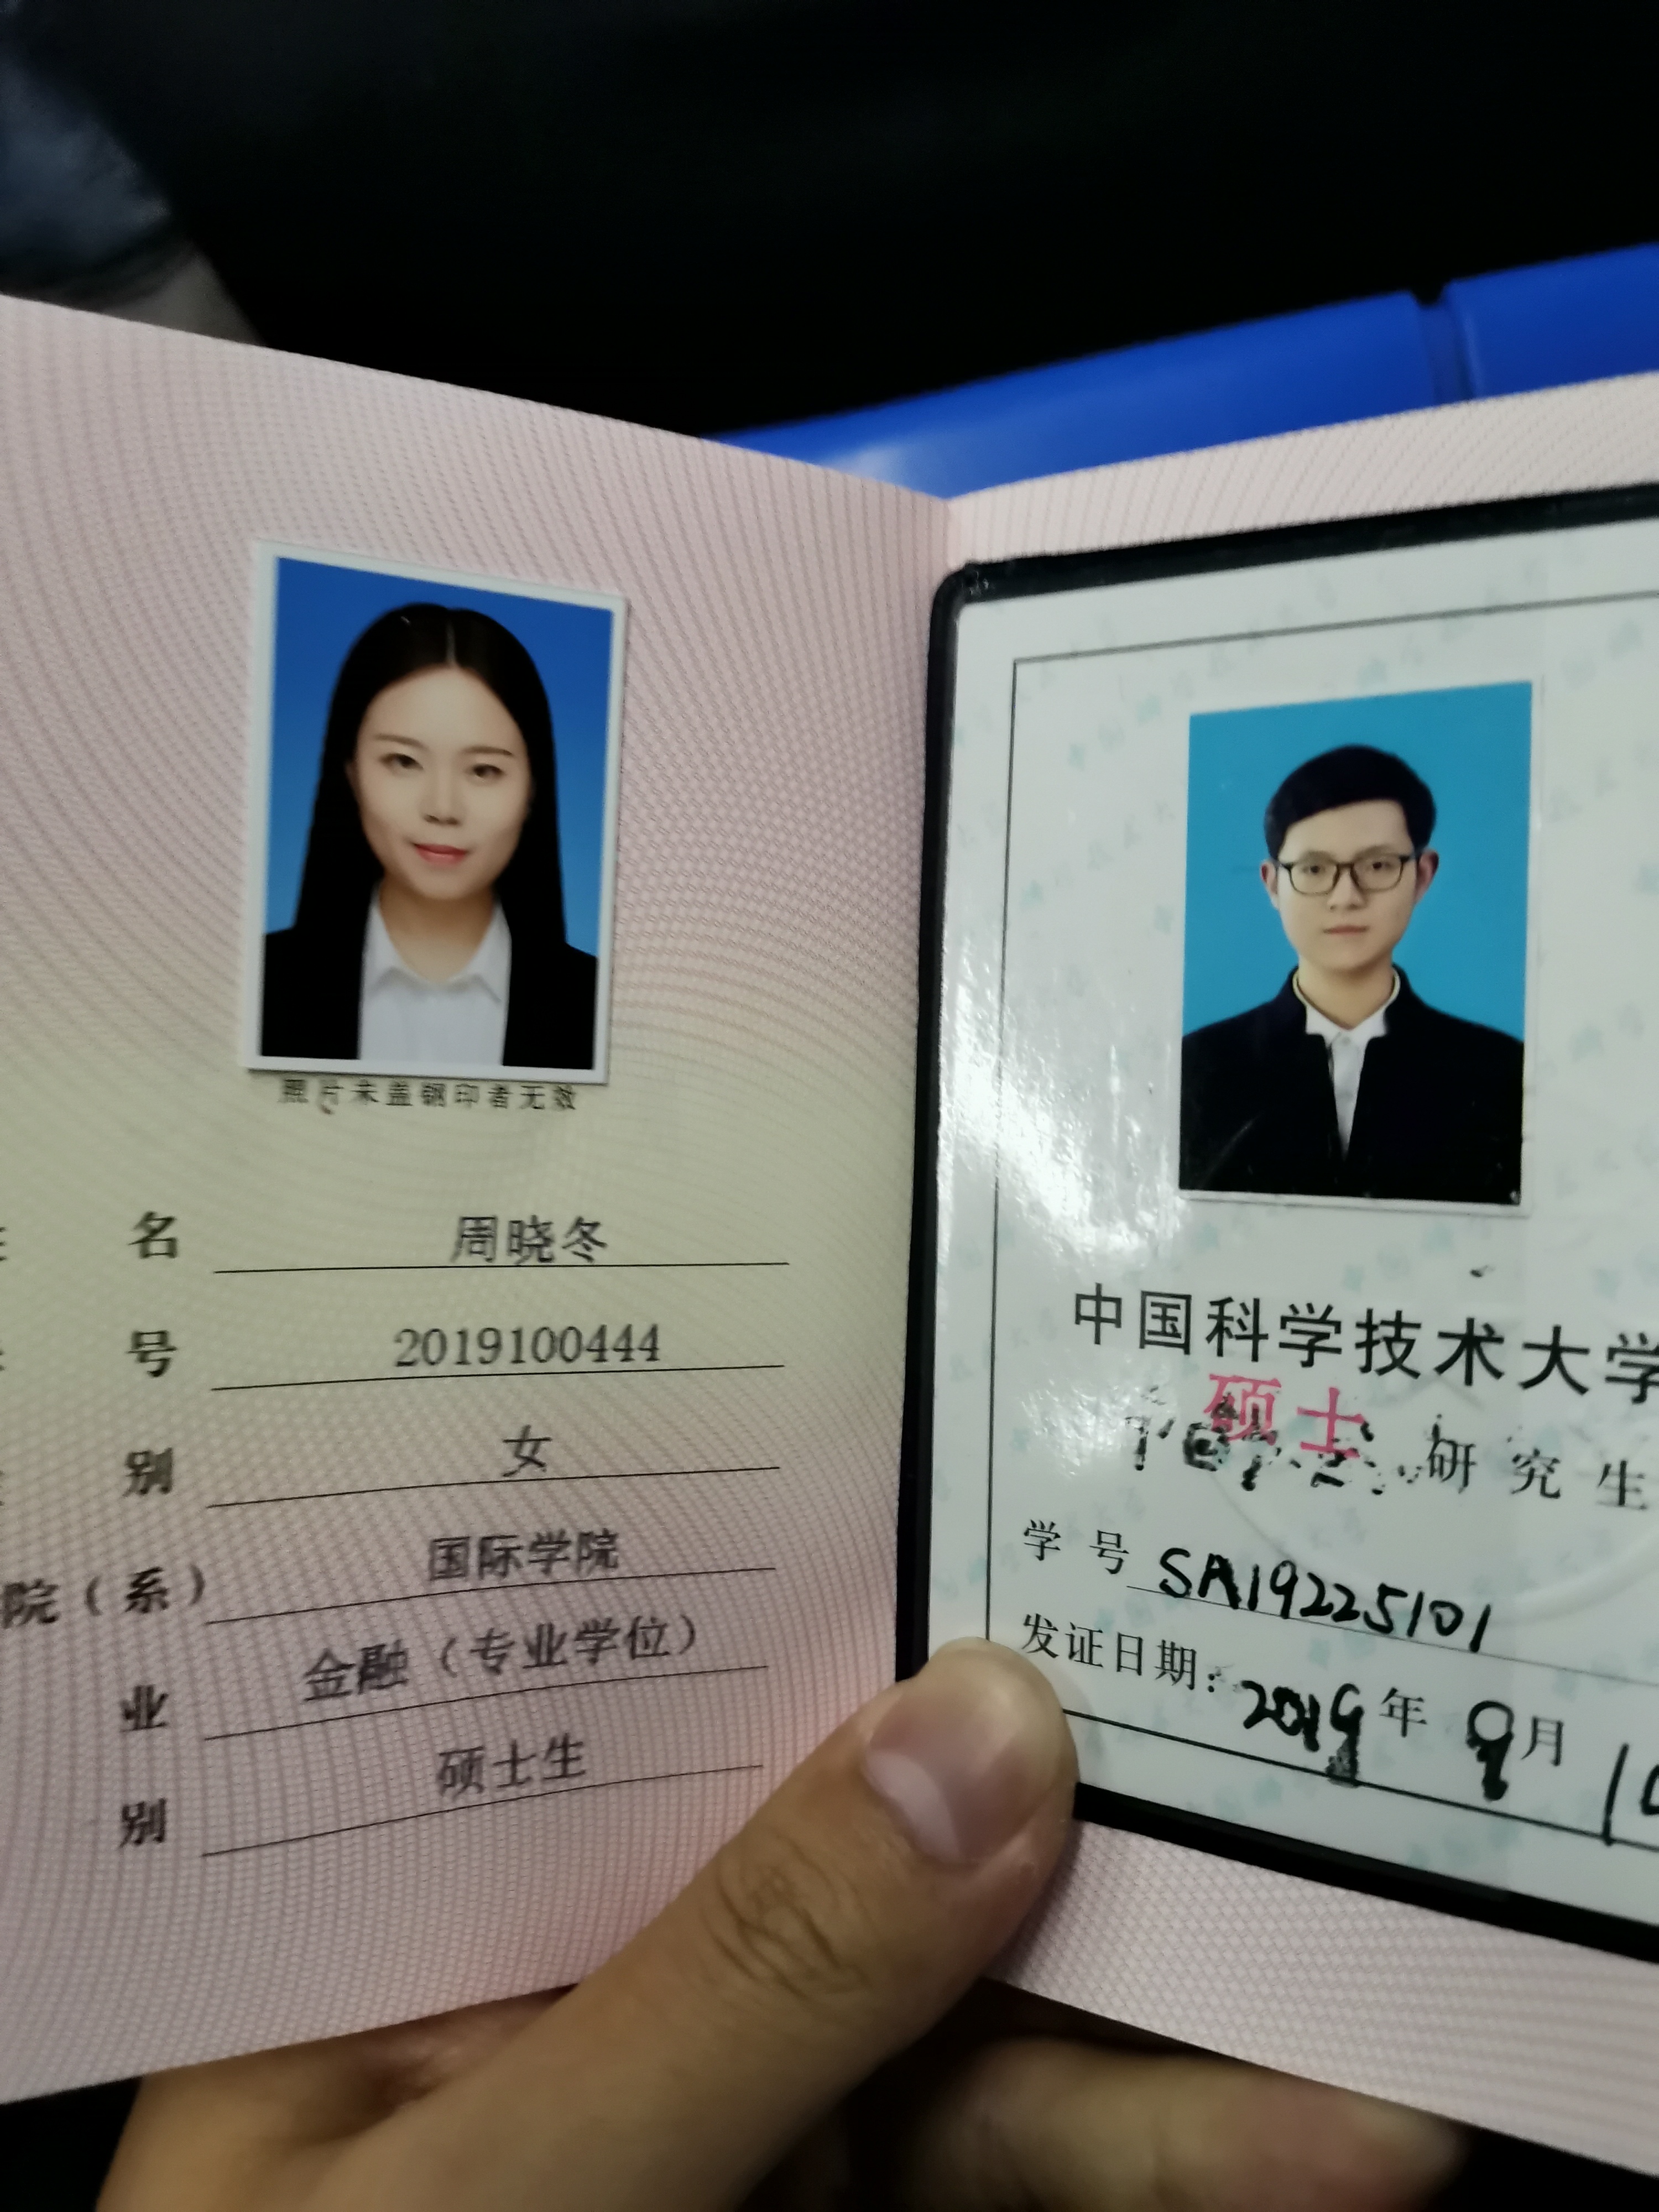 照片未盖钢印者无效
名 周晓冬
号 2019100444
别 女
院（系） 国际学院
业 金融（专业学位）
别 硕士生
中国科学技术大学
硕士 研究生
学号 SA19225101
发证日期：2019年9月10